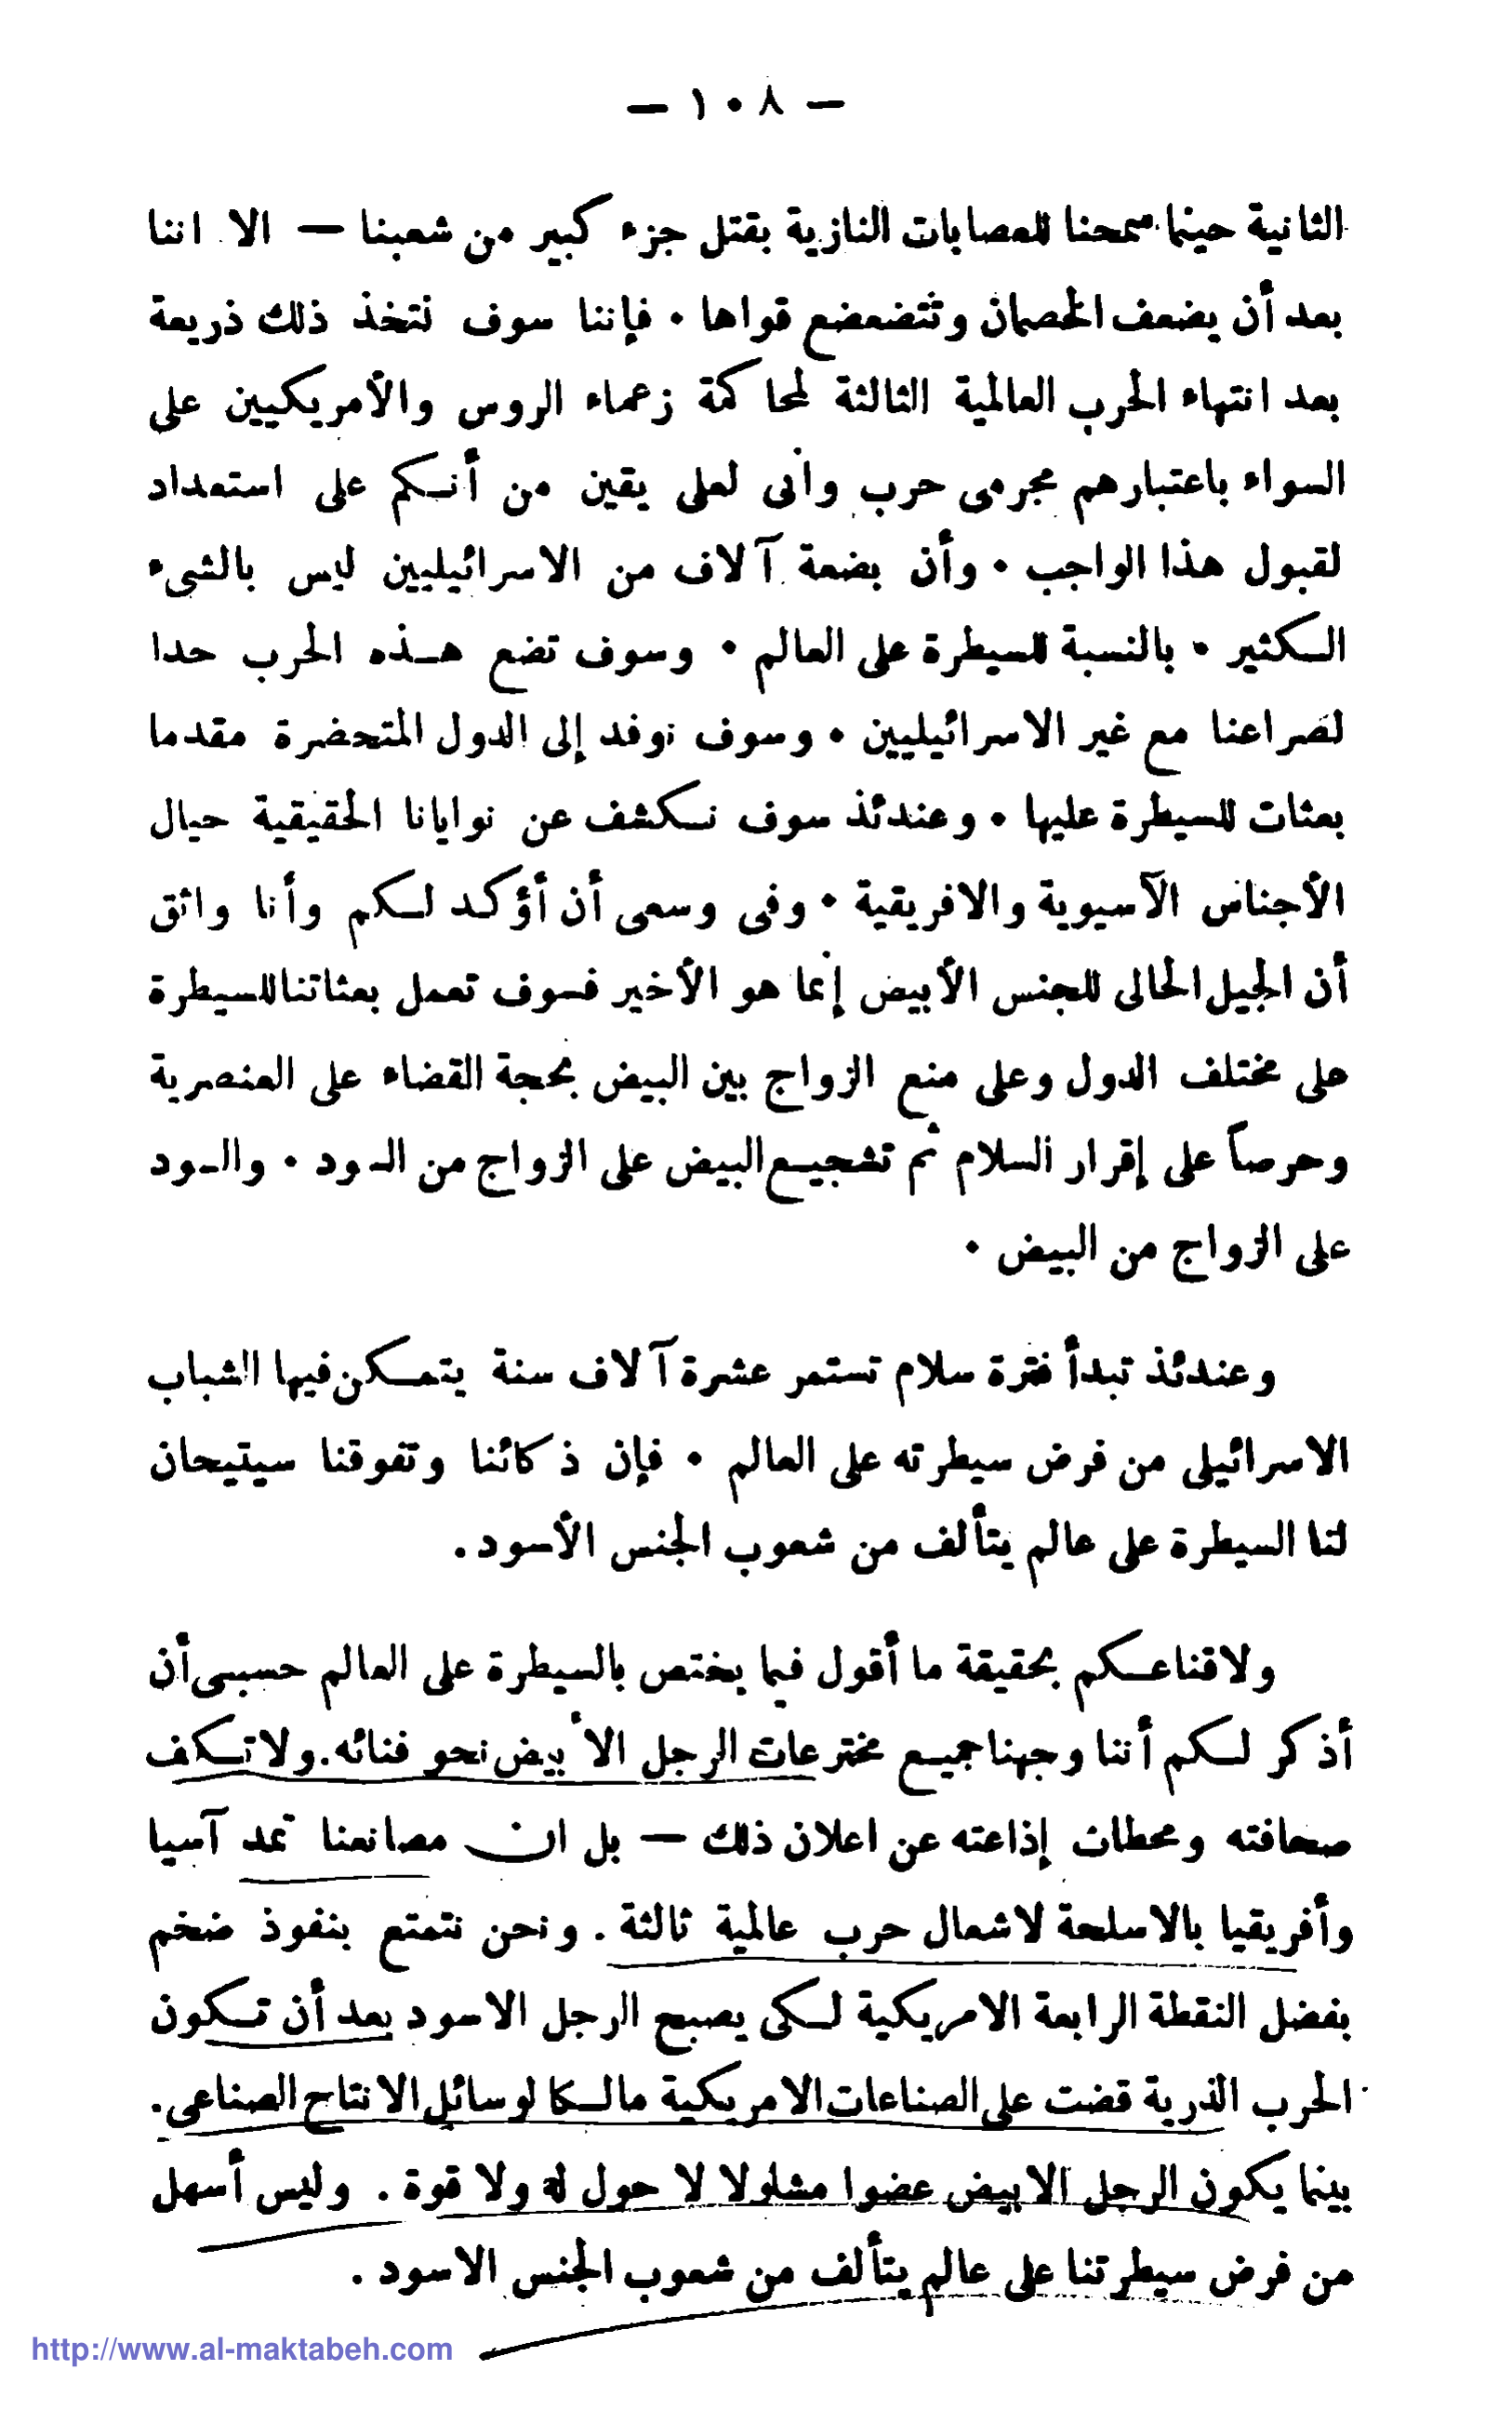 — ١٠٨ —
الثانية حينما سمحنا للعصابات النازية بقتل جزء كبير من شعبنا — الا اننا
بعد أن يضعف الخصمان وتتضعضع قواها ٠ فإننا سوف نتخذ ذلك ذريعة
بعد انتهاء الحرب العالمية الثالثة لمحاكمة زعماء الروس والأمريكيين على
السواء باعتبارهم مجرمى حرب وأنى لعلى يقين من أنكم على استعداد
لقبول هذا الواجب ٠ وأن بضعة آلاف من الاسرائيليين ليس بالشىء
الكثير ٠ بالنسبة للسيطرة على العالم ٠ وسوف تضع هذه الحرب حدا
لصراعنا مع غير الاسرائيليين ٠ وسوف نوفد إلى الدول المتحضرة مقدما
بعثات للسيطرة عليها ٠ وعندئذ سوف نكشف عن نوايانا الحقيقية حيال
الأجناس الآسيوية والافريقية ٠ وفى وسعى أن أؤكد لكم وأنا واثق
أن الجيل الحالى للجنس الأبيض إنما هو الأخير فسوف تعمل بعثاتنا للسيطرة
على مختلف الدول وعلى منع الزواج بين البيض بحجة القضاء على العنصرية
وحرصاً على إقرار السلام ثم تشجيع البيض على الزواج من السود ٠ والسود
على الزواج من البيض ٠
وعندئذ تبدأ فترة سلام تستمر عشرة آلاف سنة يتمكن فيها الشباب
الاسرائيلى من فرض سيطرته على العالم ٠ فإن ذكائنا وتفوقنا سيتيحان
لنا السيطرة على عالم يتألف من شعوب الجنس الأسود.
ولاقناعكم بحقيقة ما أقول فيما يختص بالسيطرة على العالم حسبى أن
أذكر لكم أننا وجهنا جميع مخترعات الرجل الأبيض نحو فنائه. ولا تكف
صحافته ومحطات إذاعته عن اعلان ذلك — بل ان مصانعنا تمد آسيا
وأفريقيا بالاسلحة لاشعال حرب عالمية ثالثة. ونحن نتمتع بنفوذ ضخم
بفضل النقطة الرابعة الامريكية لكى يصبح الرجل الاسود بعد أن تكون
الحرب الذرية قضت على الصناعات الامريكية مالكا لوسائل الانتاج الصناعى.
بينما يكون الرجل الابيض عضوا مشلولا لا حول له ولا قوة. وليس أسهل
من فرض سيطرتنا على عالم يتألف من شعوب الجنس الاسود.
http://www.al-maktabeh.com